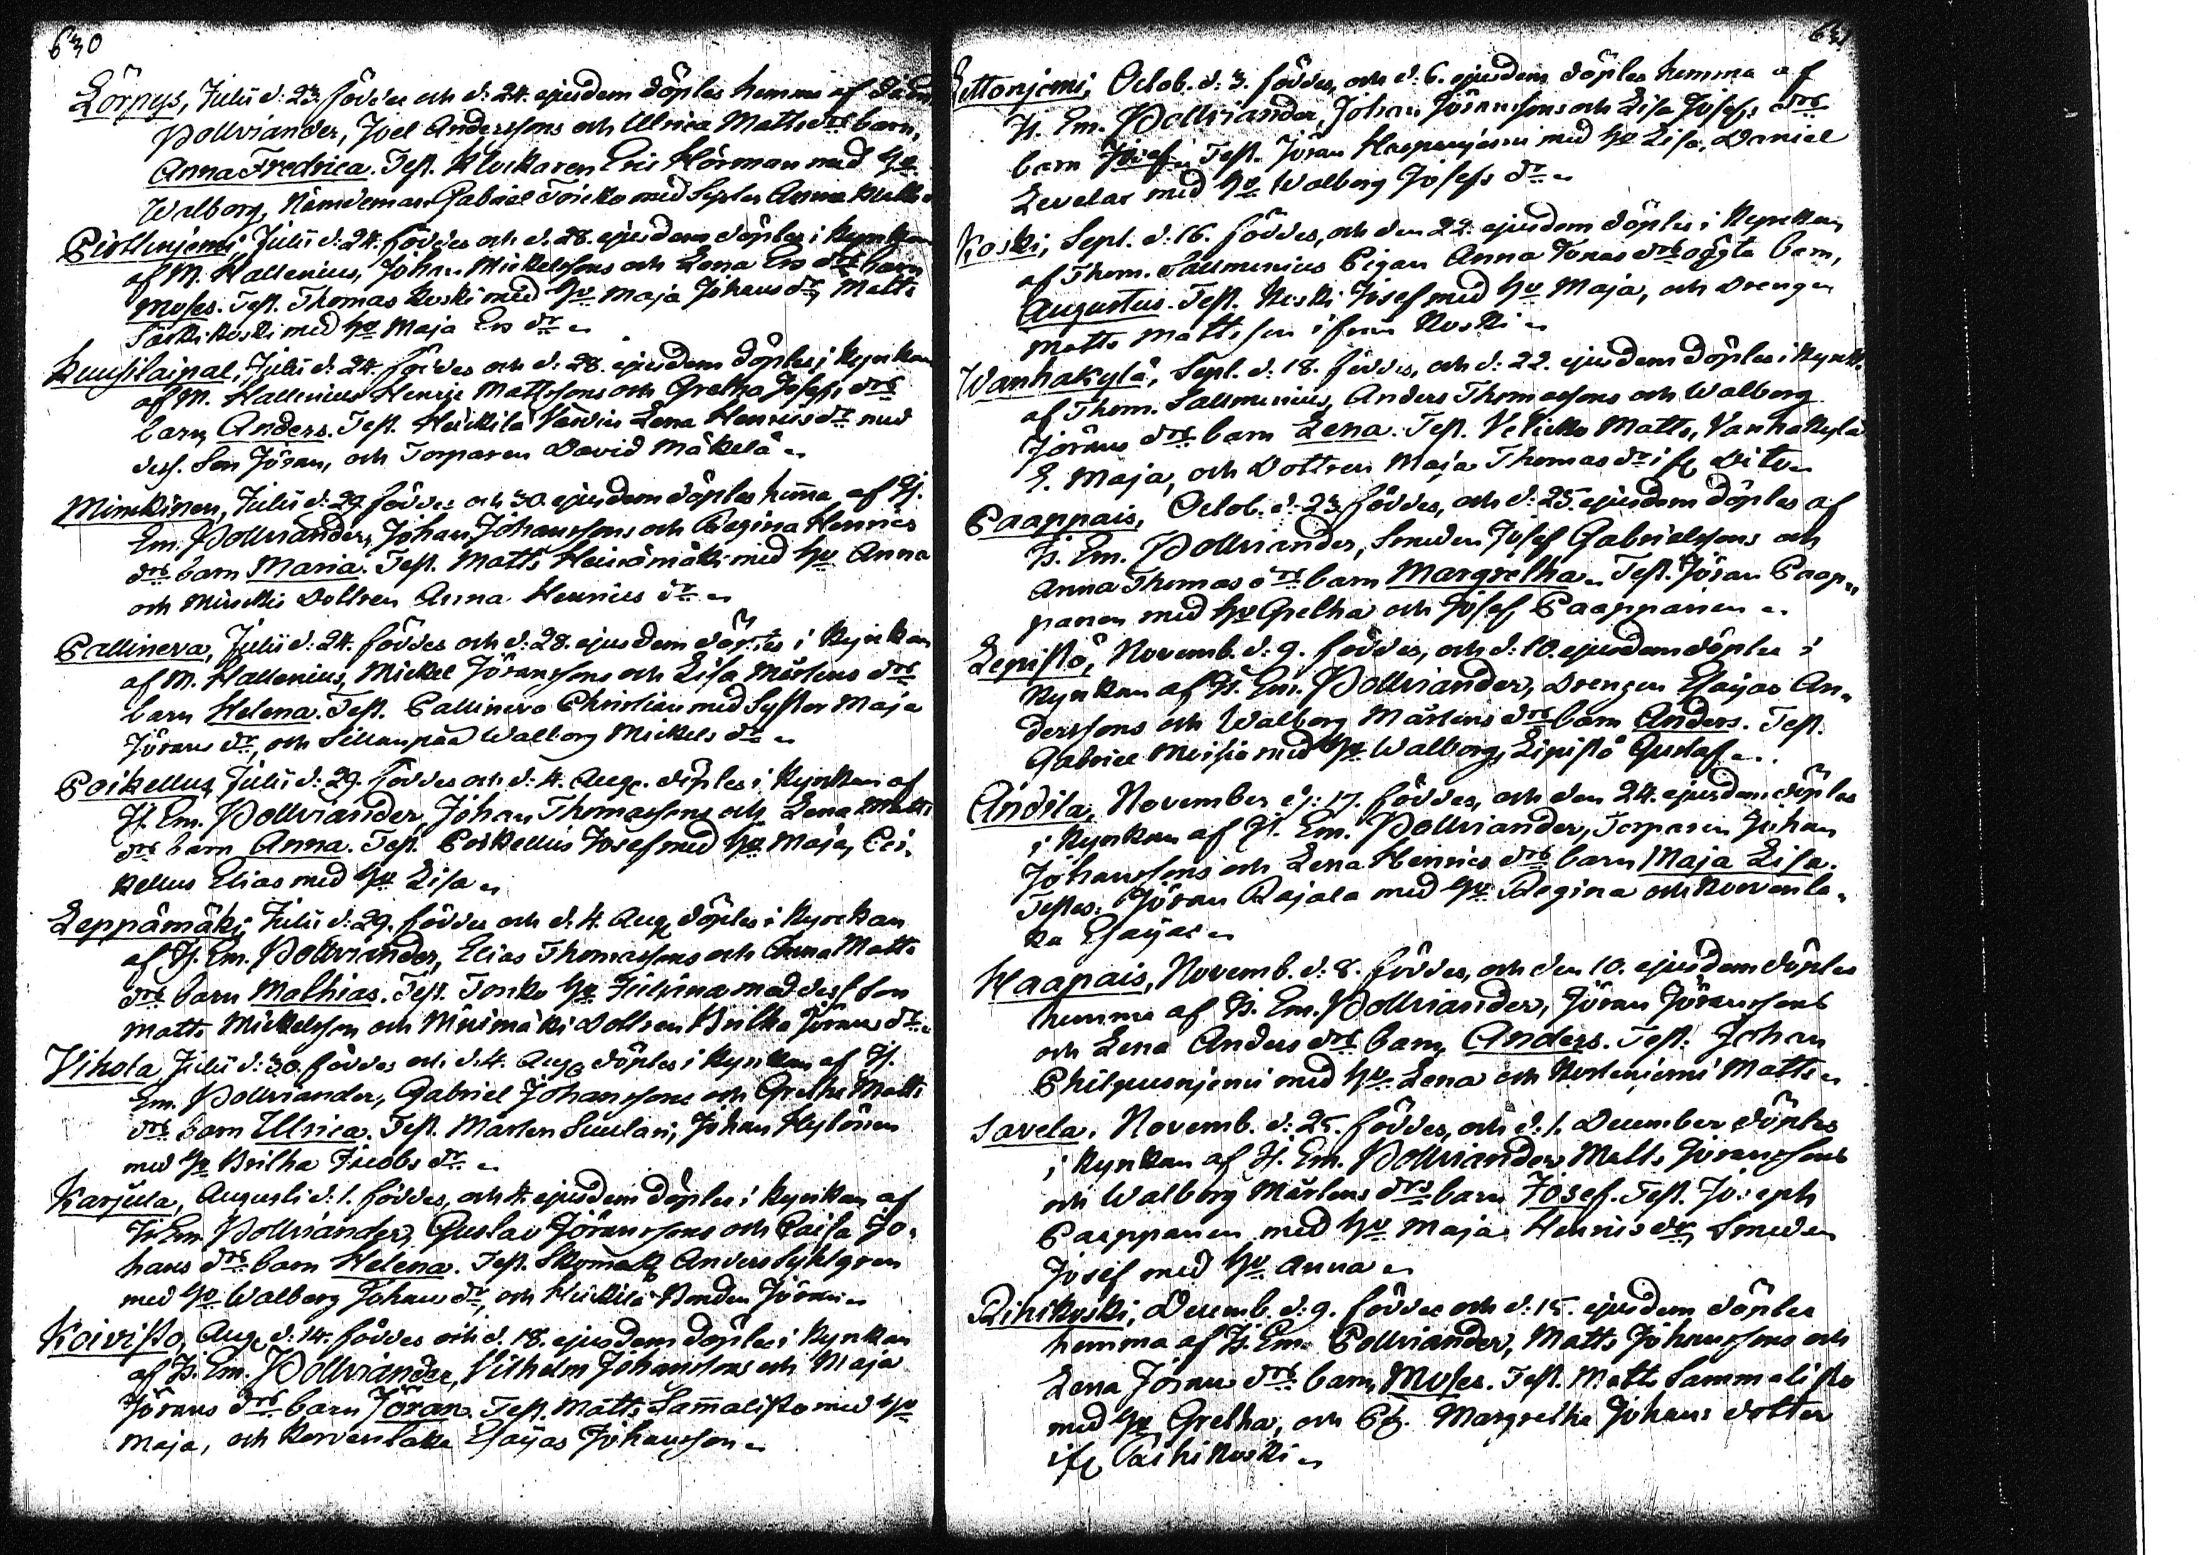 630
Lörpys, Julii d: 23. föddes och d: 24. ejusdem döptes hemma af
Pollviander, Joel Anderssons och Ulrica Matts drs barn,
Anna Fredrica. Test. Klockaren Eric Hörman med hu
Walborg, Nämdeman Gabriel med Syster Anna
Julii d: 24. föddes och d: 28. ejusdem döptes i Kyrkan
af M. Hallenius, Johan Mickelssons och Lena Ers drs barn
Moses. Test. Thomas Koski med hu Maja Johans dr, Matts
med hu Maja Ers dr
Kuusilaipal, Julii d: 24. föddes och d: 28. ejusdem döptes i Kyrkan
af M. Hallenius Henric Mattssons och Gretha Josefs drs
barn Anders. Test. Heickilä Lena Henrics dr med
dess Son Jöran, och Torparen David Mäkelä
Minckinen, Julii d: 29. föddes och 30. ejusdem döptes hemma af H.
Em. Pollviander, Johan Johanssons och Regina Henrics
drs barn Maria. Test. Matts Heinämäki med hu Anna
och Dottren Anna Henrics dr
Pallineva, Julii d: 24. föddes och d: 28. ejusdem döptes i Kyrkan
af M. Hallenius, Mickel Jöranssons och Lisa Mårtens drs
barn Helena. Test. Pallineva Christian med Syster Maja
Jörans dr, och Sillanpää Walborg Mickels dr
Poikellus, Julii d: 29. föddes och d: 4. Aug. döptes i Kyrkan af
H. Em. Pollviander, Johan Thomassons och Lena Matts
drs barn Anna. Test. Poikellus Josef med hu Maja, Poi-
kellus Elias med hu Lisa
Leppämäki, Julii d: 29. föddes och d. 4. Aug. döptes i Kyrckan
af H. Em. Pollviander, Elias Thomassons och Anna Matts
drs barn Mathias. Test. Tonko hu med dess Son
Matts Mickelsson och Dottren Britha Jörans dr
Vikola Julii d: 30. föddes och d. 4. Aug. döptes i Kyrkan af H.
Em. Pollviander, Gabriel Johanssons och Gretha Matts
drs barn Ulrica. Test. Mårten Suulari, Johan
med hu Britha Jacobs dr
Karjula, Augusti d: 1. föddes, och 4. ejusdem döptes i Kyrkan af
H. Em. Pollviander, Gustav Jöranssons och Caisa Jo-
hans drs barn Helena. Test. Skomak. Anders
med hu Walborg Johans dr, och Heickilä Bonden Jöran
Koivisto, Aug. d: 14. föddes och d. 18. ejusdem döptes i Kyrkan
af H. Em. Pollviander, Vilhelm Johanssons och Maja
Jörans drs barn Jöran. Test. Matts Samalisto med hu
Maja, och Korvenlaka Esaijas Johansson
631
Lettonjemi, Octob. d: 3. föddes, och d: 6. ejusdem döptes hemma af
H. Em. Pollviander, Johan Jöranssons och Lisa Josefs drs
barn Josef. Test. Jöran med hu Lisa, Daniel
Levelax med hu Walborg Josefs dr
Koski, Sept. d: 16. föddes, och den 22. ejusdem döptes i Kyrkan
af Thom. Sallmenius Pigan Anna Jonas drs oägta barn,
Augustus. Test. Koski Josef med hu Maja, och Drengen
Matts Mattsson ifrån Koski
Wanhakylä, Sept. d: 18. föddes, och d: 22. ejusdem döptes i Kyrk.
af Thom. Sallmenius, Anders Thomassons och Walborg
Jörans drs barn Lena. Test. Matts, Vanhakylä
E. Maja, och Dottren Maja Thomas dr if. Dito
Paappais, Octob. d: 23. föddes, och d: 25. ejusdem döptes af
H. Em. Pollviander, Smeden Josef Gabrielssons och
Anna Thomas drs barn Margretha. Test. Jöran Paap-
panen med hu Gretha och Josef Paappanen
Lepistö, Novemb. d: 9. föddes, och d: 10. ejusdem döptes i
Kyrkan af H. Em. Pollviander, Drengen Esaijas An-
derssons och Walborg Mårtens drs barn Anders. Test.
Gabriel med hu Walborg, Lepistö Gustaf
Andila, November d: 17. föddes, och den 24. ejusdem döptes
i Kyrkan af H. Em. Pollviander, Torparen Johan
Johanssons och Lena Henrics drs barn Maja Lisa.
Testes: Jöran Rajala med hu Regina och Korvenla-
ka Esaijas
Haapais, Novemb. d: 8. föddes, och den 10. ejusdem döptes
hemma af H. Em. Pollviander, Jöran Jöranssons
och Lena Anders drs barn Anders. Test: Johan
med hu Lena och Matts
Savela, Novemb. d: 25. föddes, och d: 1. December döptes
i Kyrkan af H. Em. Pollviander Matts Jöranssons
och Walborg Mårtens drs barn Josef. Test. Joseph
Paappanen med hu Maja Henrics dr, Smeden
Josef med hu Anna
Decemb. d: 9. föddes och d: 15. ejusdem döptes
hemma af H. Em. Pollviander, Matts Johanssons och
Lena Jörans drs barn Moses. Test. Matts Sammalisto
med hu Gretha, och P. Margretha Johans dotter
if.